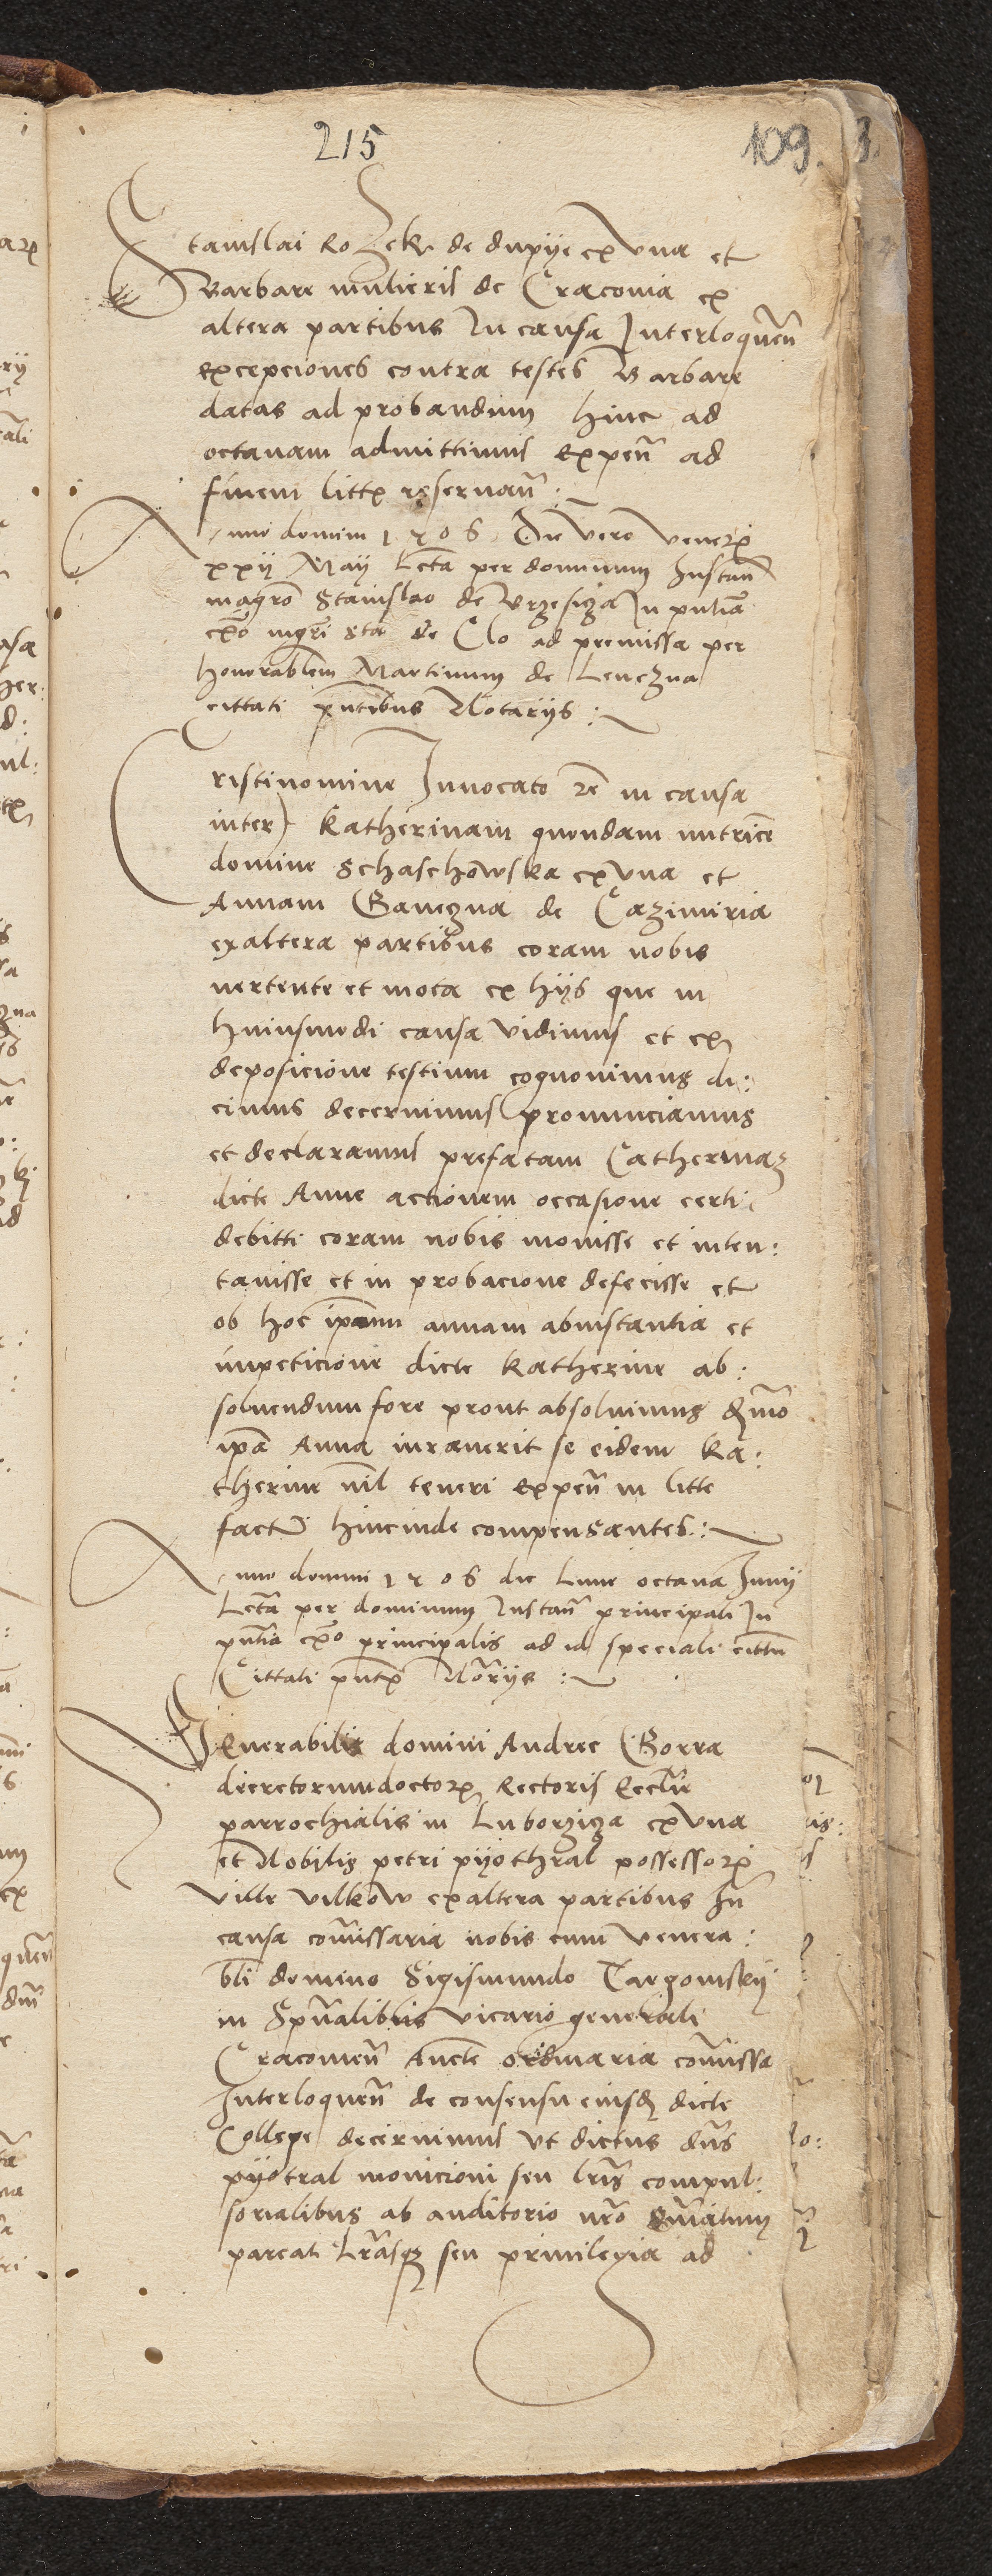 215
109.
Stanislai Rozek de dupije ex una et
Barbare mulieris de Cracovia ex
altera partibus In causa Interloquen̄
excepciones contra testes Barbare
datas ad probandum hinc ad
octavam admittimus expen̄ ad
finem litt reservan̄ :
Anno domini 1506 Die vero Vener
xxij Maij Lcta per dominum Instan̄
magro Stanislao de Brzesiga In pntia
mgri de Clo ad premissa per
honorablem Martinum de Lenczna
cittati pntibus Notarijs :
Cristi nomine Invocato in causa
inter Katherinam quondam nutrice
domine Schaschowska ex una et
Annam Ganczna de Cazimiria
ex altera partibus coram nobis
vertente et mota ex hijs que in
huiusmodi causa vidimus et ex
deposicione testium cognovimus di:
cimus decernimus pronunciamus
et declaramus prefatam Catherinaz
dicte Anne actionem occasione certi
debitti coram nobis movisse et inten:
tavisse et in probacione defecisse et
ob hoc ipam annam ab instantia et
impeticione dicte Katherine ab:
solvendum fore prout absolvimus
ipa Anna iuraverit se eidem Ka:
therine nil teneri expen̄ in litte
fact hincinde compensantes :
Anno domini 1506 die lune octava Junij
Lcta per dominum Instan̄ principali In
pntia principalis ad id speciali citttu
Cittati pnt Notrijs :
Venerabilis domini Andree Gorra
decretorum doctor Rectoris Ecclie
parrochialis in Luborziga ex una
et Nobilis petri pijothral possessor
ville vilkow ex altera partibus In
causa comissaria nobis cum venera:
bli domino Sigismundo Targowskij
in Spualibus vicario generali
Cracovien̄ Aucte ordinaria comissa
Interloquen̄ de consensu eiusd dicte
College decernimus ut dictus dns
pijotral monicioni seu lris compul:
sorialibus ab auditorio nro emanatum
pareat Lrasq seu privilegia ad